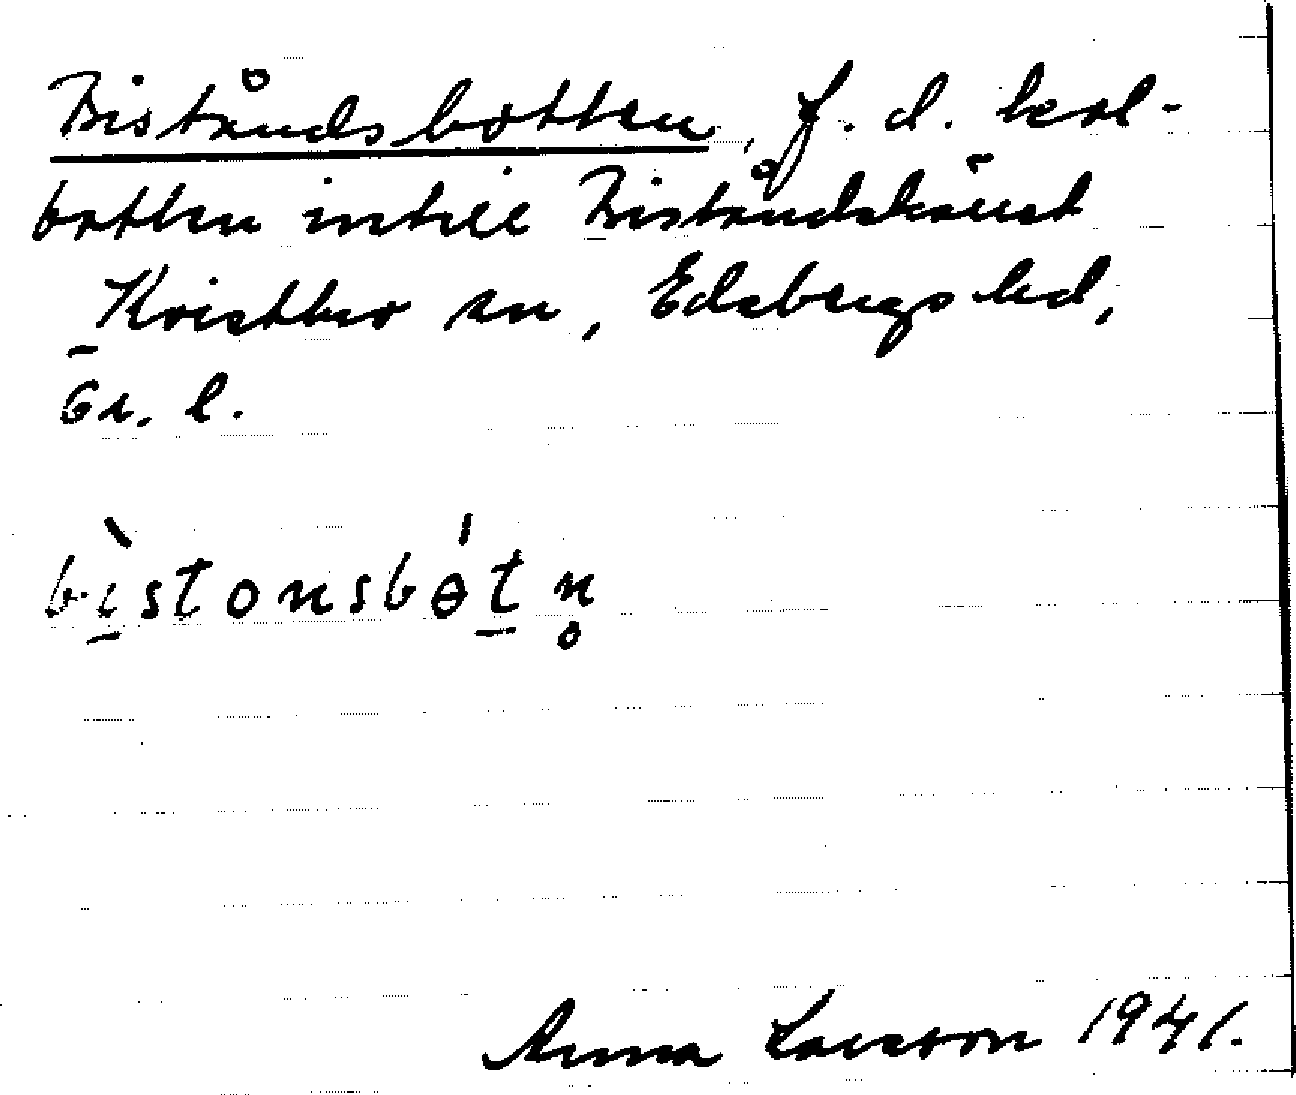 Biståndsbotten, f. d. kol-
botten intill Biståndskärret
Kvistbro sn, Edsbergs hd,
Ör. l.
bìstonsbɵ́tn̥
Anna Larsson 1941.